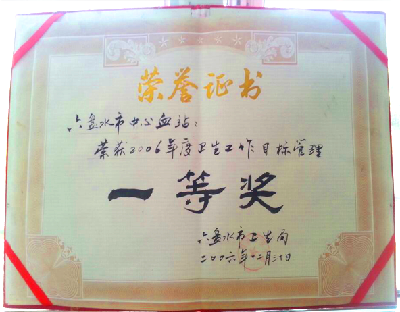 荣誉证书
六盘水市中心血站:
荣获2006年度卫生工作目标管理
一等奖
六盘水市卫生局
二00六年十二月三十日